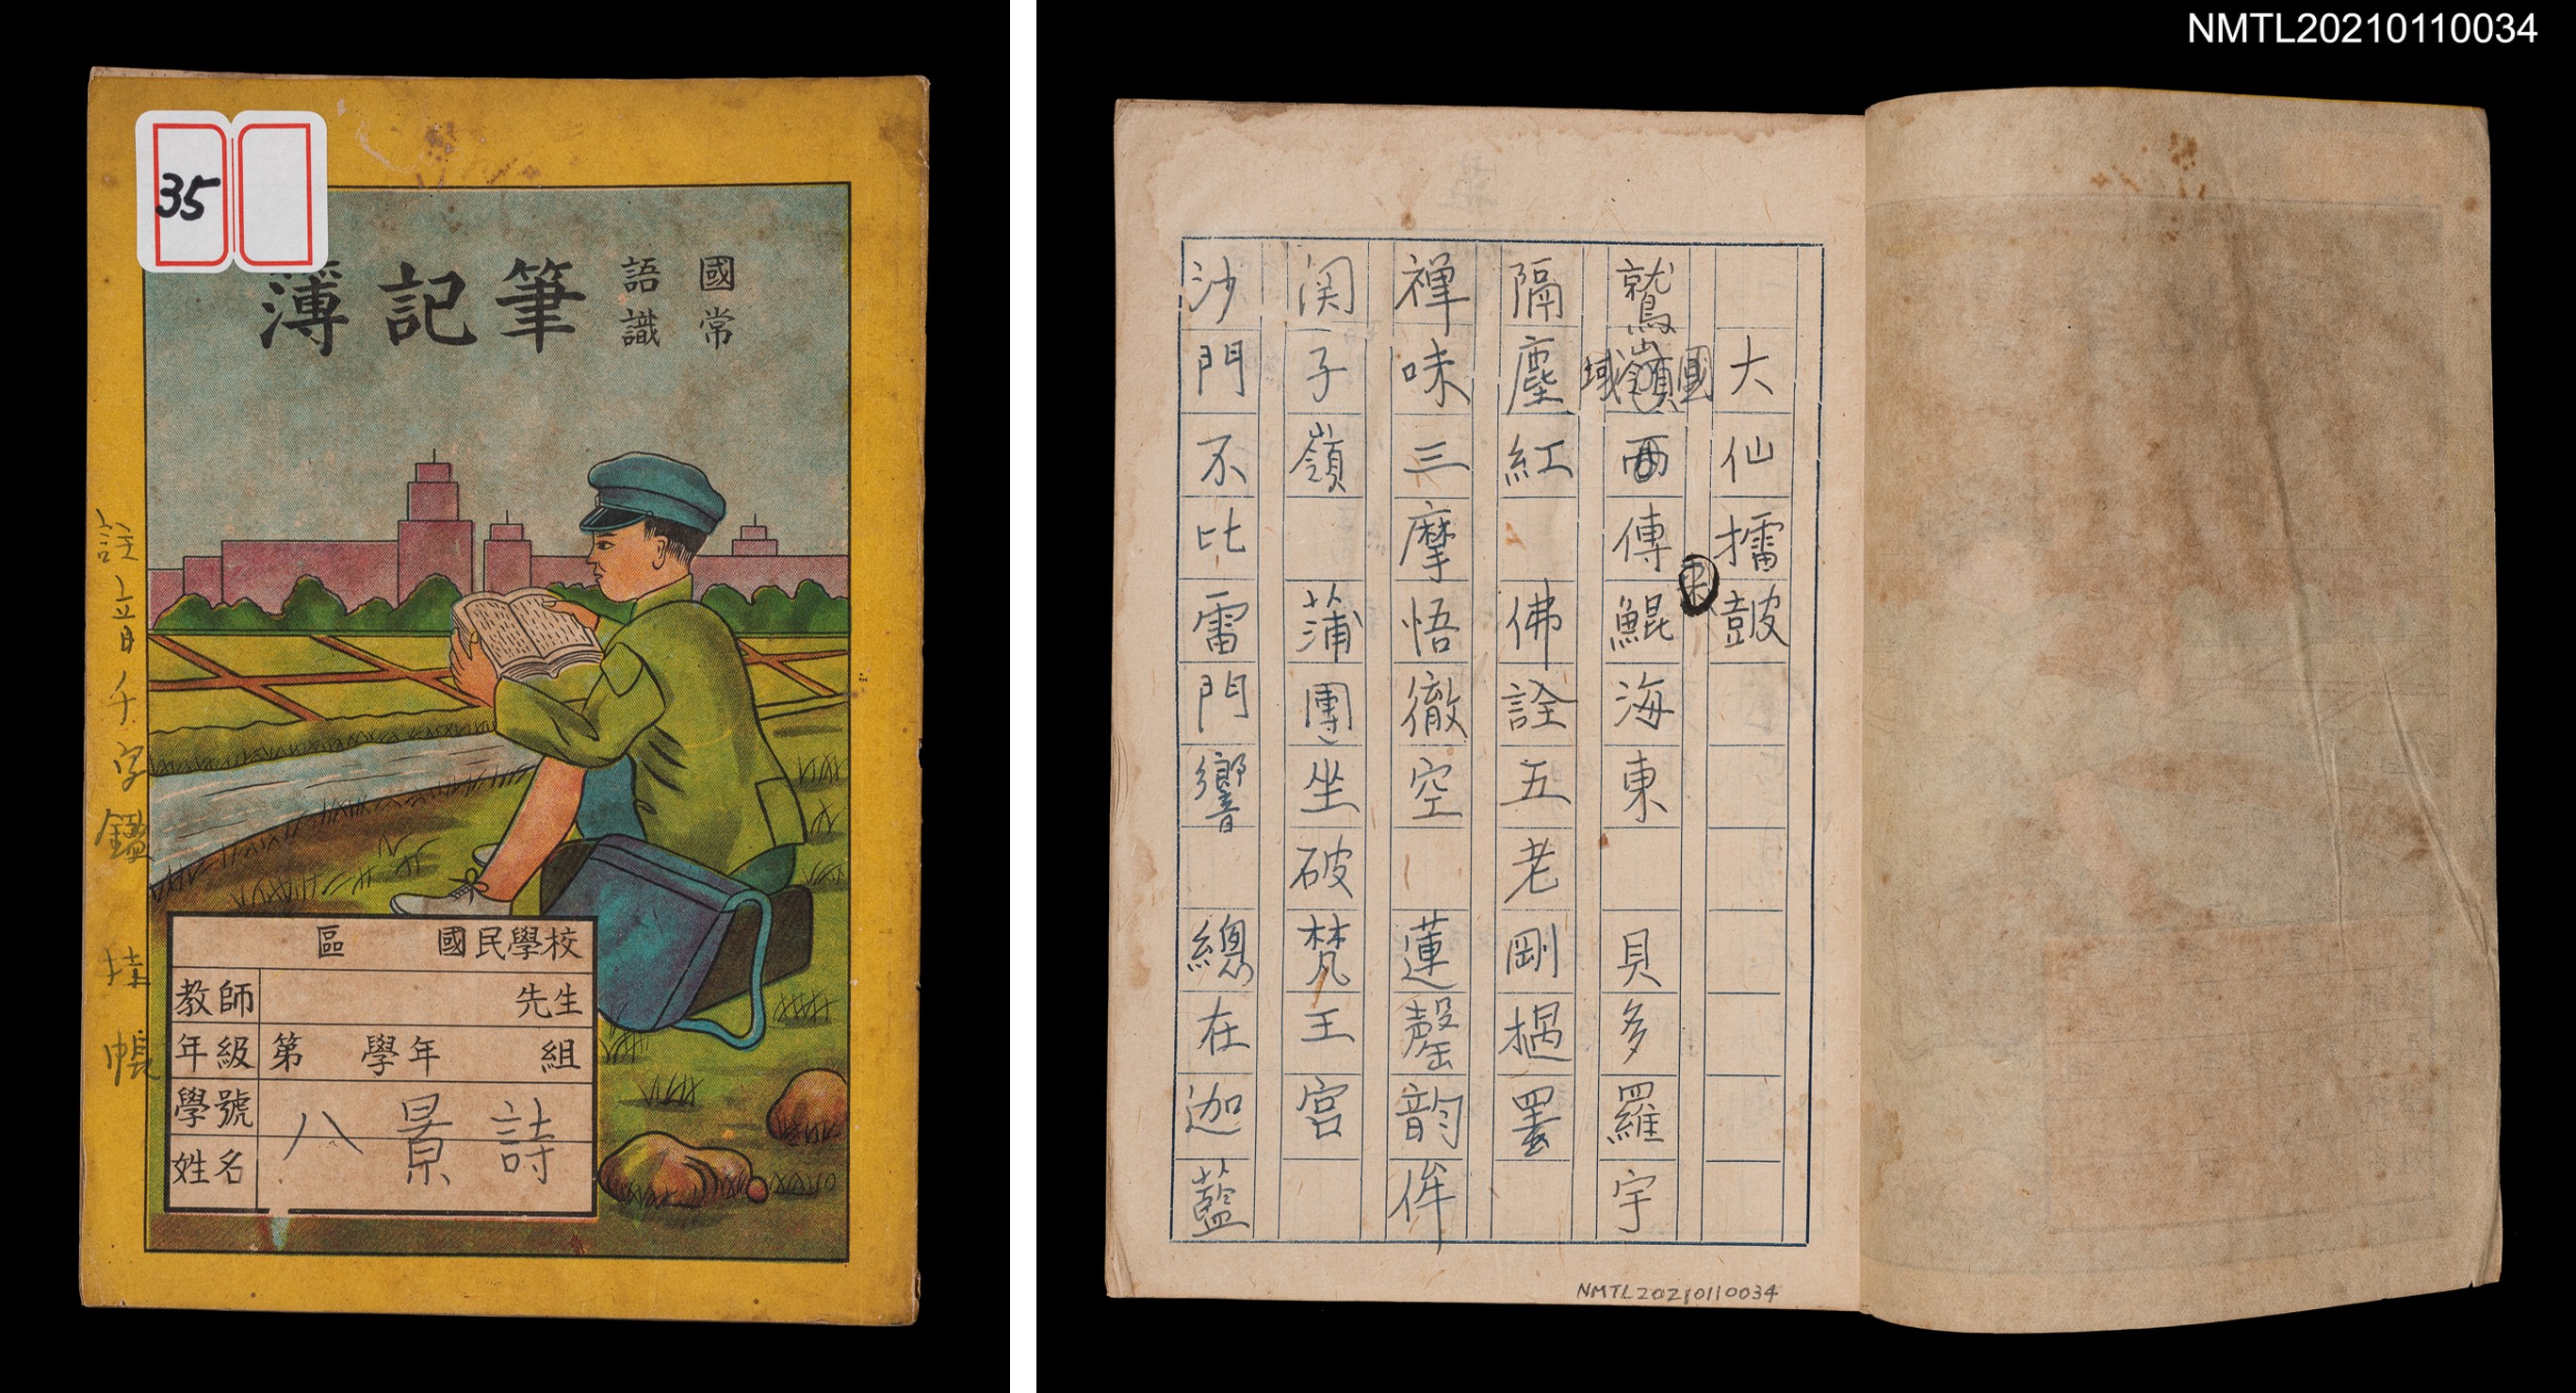 NMTL20210110034
35
國語
常識
筆記簿
註音千字鑑 挂帳
區 國民學校
教師 先生
年級 第 學年 組
學號
姓名
八景詩
大仙擂鼓
國
鷲嶺西傳鯤海東 貝多羅宇
域
隔塵紅 佛詮五老剛撾罢
禅味三摩悟徹空 蓮罄韵侔
関子嶺 蒲團坐破梵王宮
沙門不比雷門響 總在迦藍
NMTL20210110034